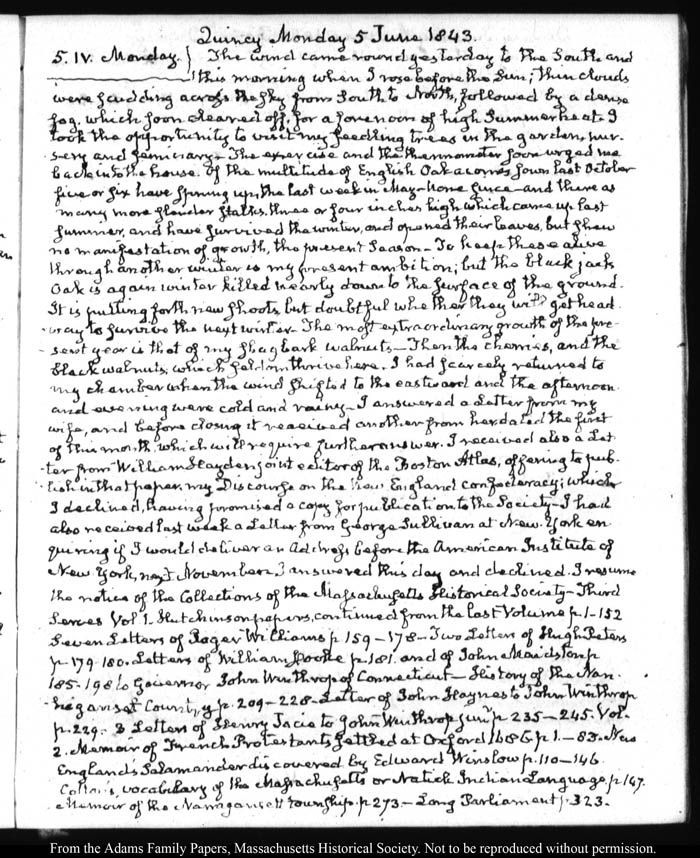 Quincy Monday 5 June 1843.
5. IV. Monday. } The wind came round yesterday to the South and
this morning when I rose before the Sun; thin clouds
were scudding across the sky from South to North, followed by a dense
fog, which soon cleared off, for a forenoon of high Summer heat. I
took the opportunity to visit my seedling trees in the garden, nur-
sery and seminary. The exercise and the thermometer soon urged me
back into the house. Of the multitude of English Oak acorns sown last October
five or six have sprung up, the last week in May—none since—and there as
many more slender stalks, three or four inches high which came up last
summer, and have survived the winter, and opened their leaves, but shew
no manifestation of growth, the present Season—To keep these alive
through another winter is my present ambition; but the black jack
Oak is again winter killed nearly down to the surface of the ground.
It is putting forth new shoots but doubtful whether they will get head
way to survive the next winter—The most extraordinary growth of the pre-
sent year is that of my shagbark walnuts—Then the cherries, and the
black walnuts, which seldom thrive here. I had scarcely returned to
my chamber when the wind shifted to the eastward and the afternoon
and evening were cold and rainy—I answered a Letter from my
wife, and before closing it received another from her dated the first
of this month, which will require further answer. I received also a Let-
ter from William Hayden joint editor of the Boston Atlas, offering to pub-
lish in that paper, my Discourse on the New England confederacy; which
I declined, having promised a copy for publication to the Society—I had
also received last week a Letter from George Sullivan at New-York en
quiring if I would deliver an Address before the American Institute of
New York, next November. I answered this day and declined. I resume
the notice of the Collections of the Massachusetts Historical Society—Third
Series Vol 1. Hutchinson papers, continued from the last Volume p. 1–152
Seven Letters of Roger Williams p 159–178—Two Letters of Hugh Peters
p. 179–180. Letters of William Hooke p 181. and of John Maidston p
185–198 to Governor John Winthrop of Connecticut—History of the Nar-
raganset Country p. 209–228—Letter of John Haynes to John Winthrop
p. 229. 3 Letters of Henry Jacie to John Winthrop junr p 235–245. Vol.
2. Memoir of French Protestants settled at Oxford 1686 p 1–83. New
England's Salamander discovered by Edward Winslow p. 110–146.
Cotton's vocabulary of the Massachusetts or Natick Indian Language, p 147.
Memoir of the Narraganset township. p 273—Long Parliament p. 323.
From the Adams Family Papers, Massachusetts Historical Society. Not to be reproduced without permission.